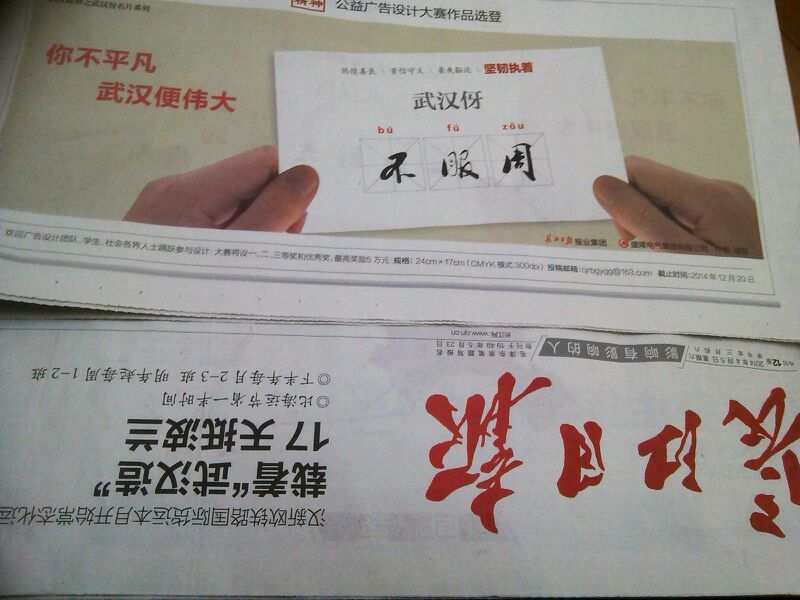 公益广告设计大赛作品选登
你不平凡
武汉便伟大
热情善良 \ 重信守义 \ 豪爽豁达 \ 坚韧执着
武汉伢
bú fú zōu
不服周
长江日报报业集团
欢迎广告设计团队、学生、社会各界人士踊跃参与设计 大赛将设一、二、三等奖和优秀奖,最高奖励5万元 规格：24cm×17cm(CMYK 模式 300dpi) 投稿邮箱:cjrbgygg@163.com 截止时间:2014年12月20日
长江日报
今日12版
2014年4月5日 星期六
影响有影响的人
毛泽东亲笔题写报名
创刊于1949年5月23日
长江网:www.cjn.cn
汉新欧铁路国际货运本月开始常态化运
载着“武汉造”
17天抵波兰
◎比海运节省一半时间
◎下半年每月2-3班 明年起每周1-2班